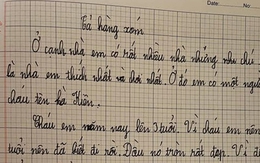 Date:
No:
Tả hàng xóm
Ở cạnh nhà em có rất nhiều nhà nhưng nhà chú
là nhà em thích nhất và chơi nhất. Ở đó em có một người
cháu tên là Hiên.
Cháu em năm nay lên 3 tuổi. Vì cháu em năm
tuổi nên đã biết đi rồi. Đầu nó tròn rất đẹp. Vì